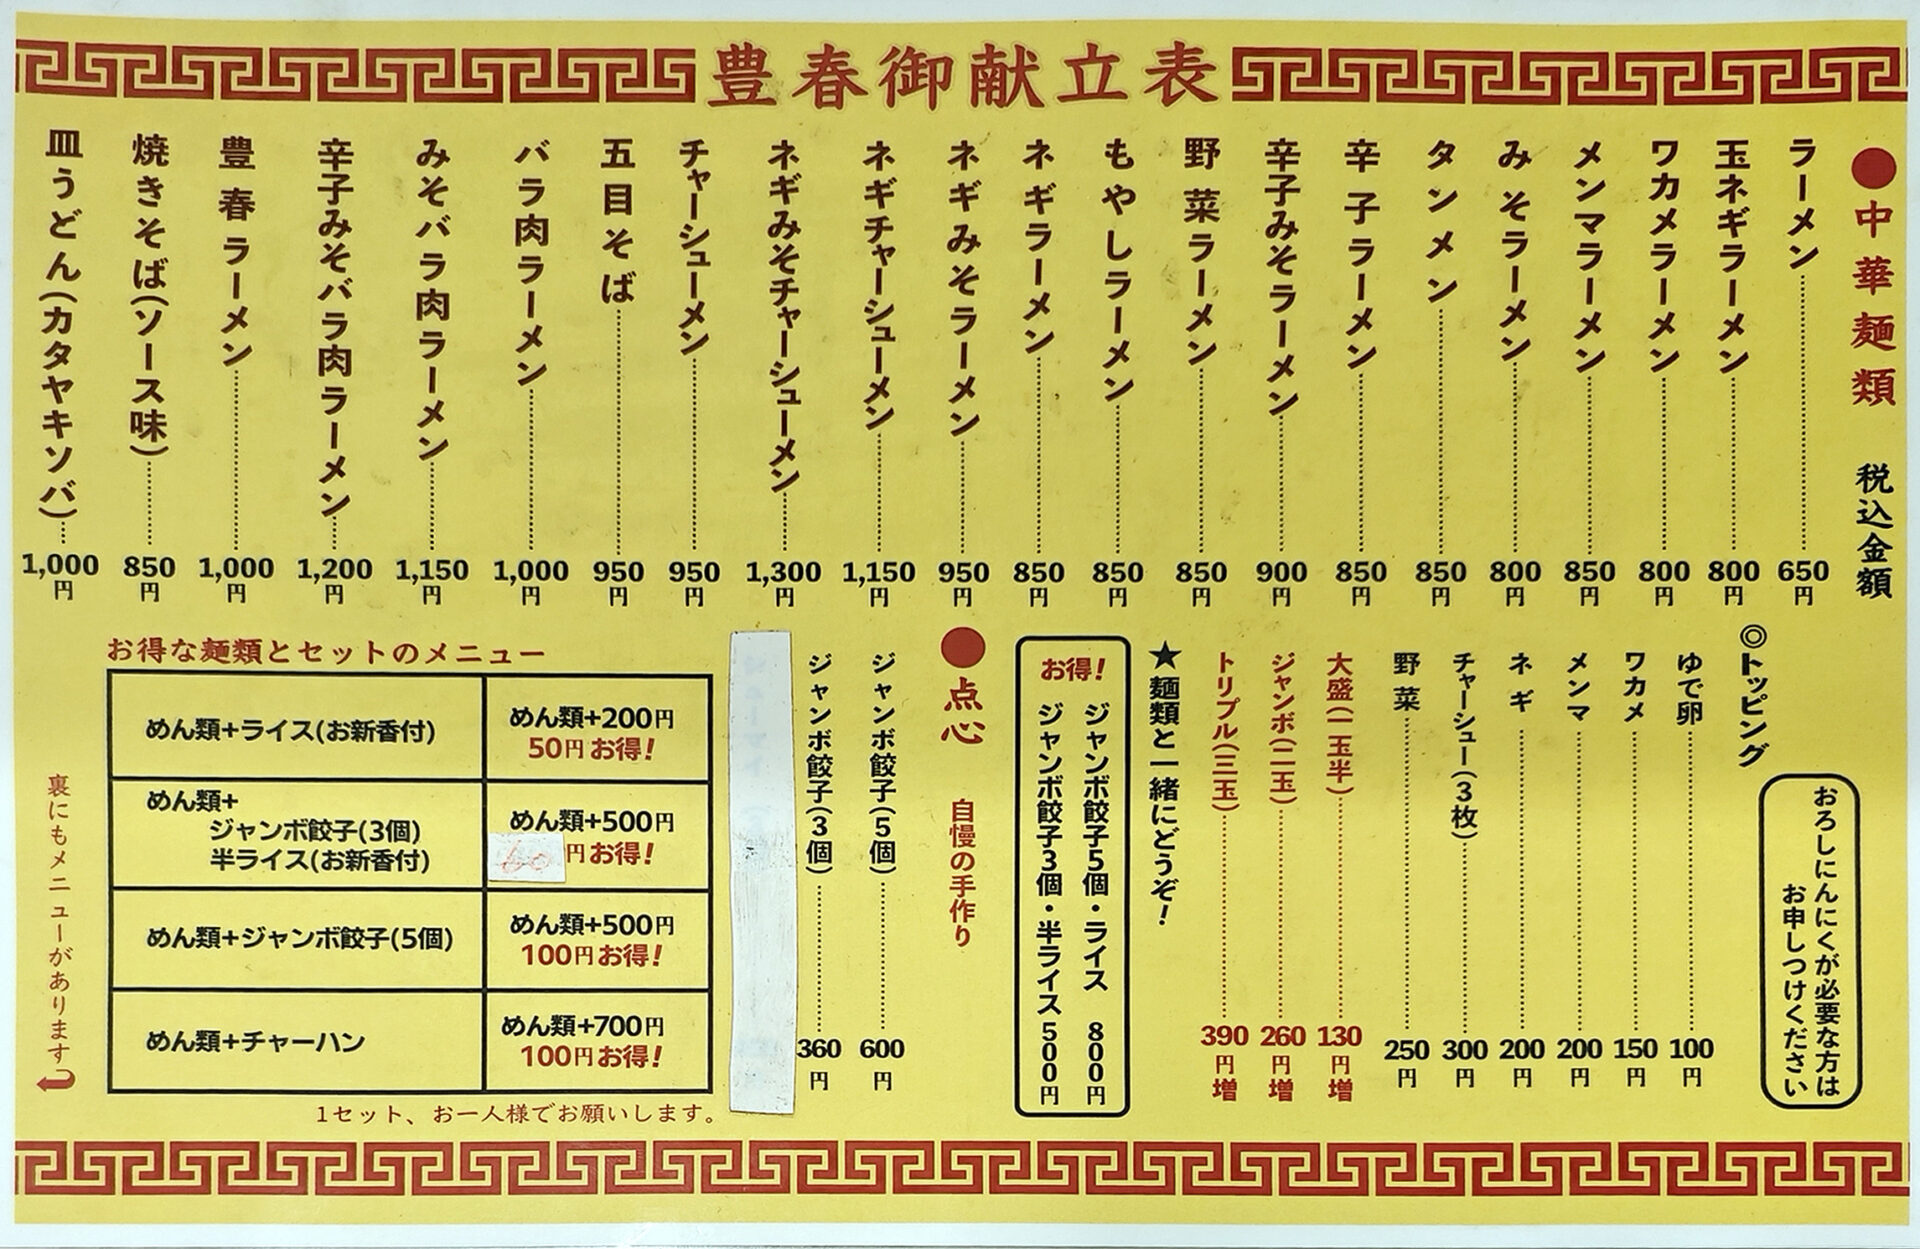 豊春御献立表
●中華麺類 税込金額
ラーメン 650円
玉ネギラーメン 800円
ワカメラーメン 800円
メンマラーメン 850円
みそラーメン 800円
タンメン 850円
辛子ラーメン 850円
辛子みそラーメン 900円
野菜ラーメン 850円
もやしラーメン 850円
ネギラーメン 850円
ネギみそラーメン 950円
ネギチャーシューメン 1,150円
ネギみそチャーシューメン 1,300円
チャーシューメン 950円
五目そば 950円
バラ肉ラーメン 1,000円
みそバラ肉ラーメン 1,150円
辛子みそバラ肉ラーメン 1,200円
豊春ラーメン 1,000円
焼きそば(ソース味) 850円
皿うどん(カタヤキソバ) 1,000円
おろしにんにくが必要な方は
お申しつけください
◎トッピング
ゆで卵 100円
ワカメ 150円
メンマ 200円
ネギ 200円
チャーシュー(3枚) 300円
野菜 250円
大盛(一玉半) 130円増
ジャンボ(二玉) 260円増
トリプル(三玉) 390円増
★麺類と一緒にどうぞ!
お得!
ジャンボ餃子5個・ライス 800円
ジャンボ餃子3個・半ライス 500円
●点心 自慢の手作り
ジャンボ餃子(5個) 600円
ジャンボ餃子(3個) 360円
お得な麺類とセットのメニュー
めん類+ライス(お新香付)
めん類+200円
50円お得!
めん類+
ジャンボ餃子(3個)
半ライス(お新香付)
めん類+500円
60円お得!
めん類+ジャンボ餃子(5個)
めん類+500円
100円お得!
めん類+チャーハン
めん類+700円
100円お得!
1セット、お一人様でお願いします。
裏にもメニューがあります